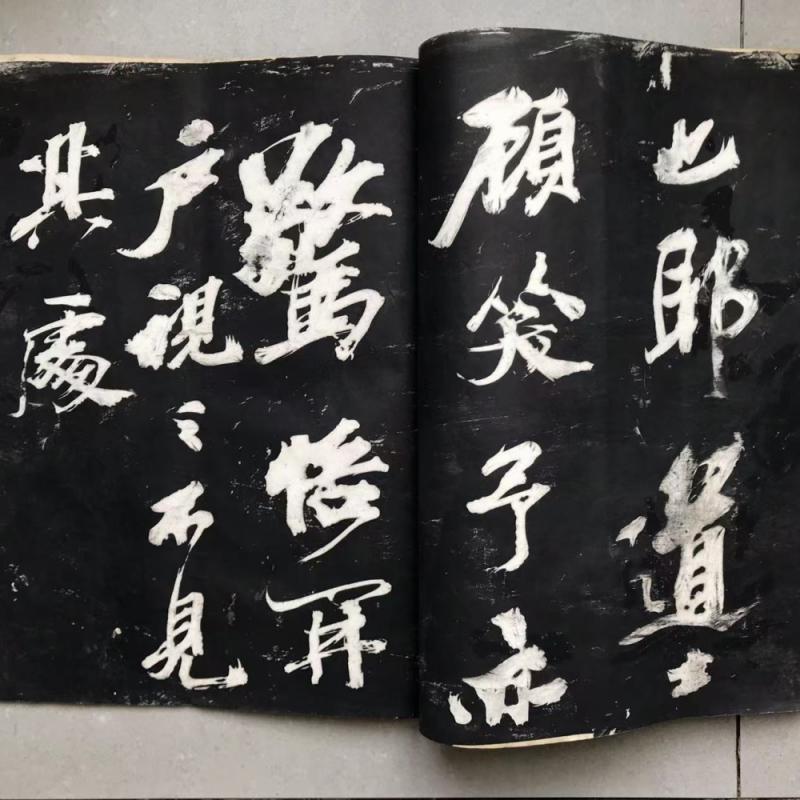 也耶道士
顧笑予亦
驚悟開
户視之不見
其處